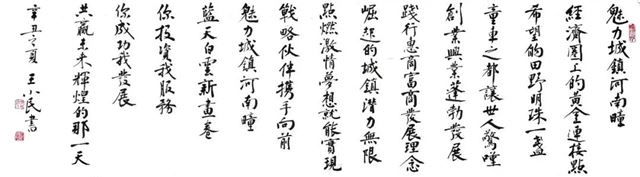 魅力城鎮河南疃
經濟圈上的黃金連接點
希望的田野明珠一盞
童車之都讓世人驚嘆
創業興業蓬勃發展
踐行惠商富商發展理念
崛起的城鎮潛力無限
點燃激情夢想就能實現
戰略伙伴攜手向前
魅力城鎮河南疃
藍天白雲新畫卷
你投資我服務
你成功我發展
共贏未來輝煌的那一天
辛丑之夏 王小民書